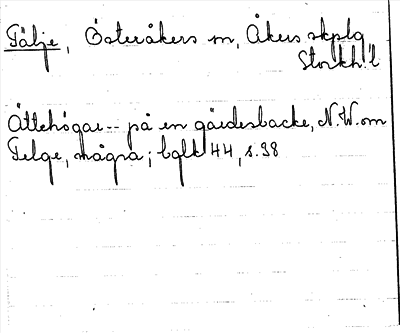 Tälje, Österåkers sn, Åkers skplg
Stockh. l
Ättehögar -- på en gärdesbacke, N.W. om
Telge, några; bqlk 44, s. 98